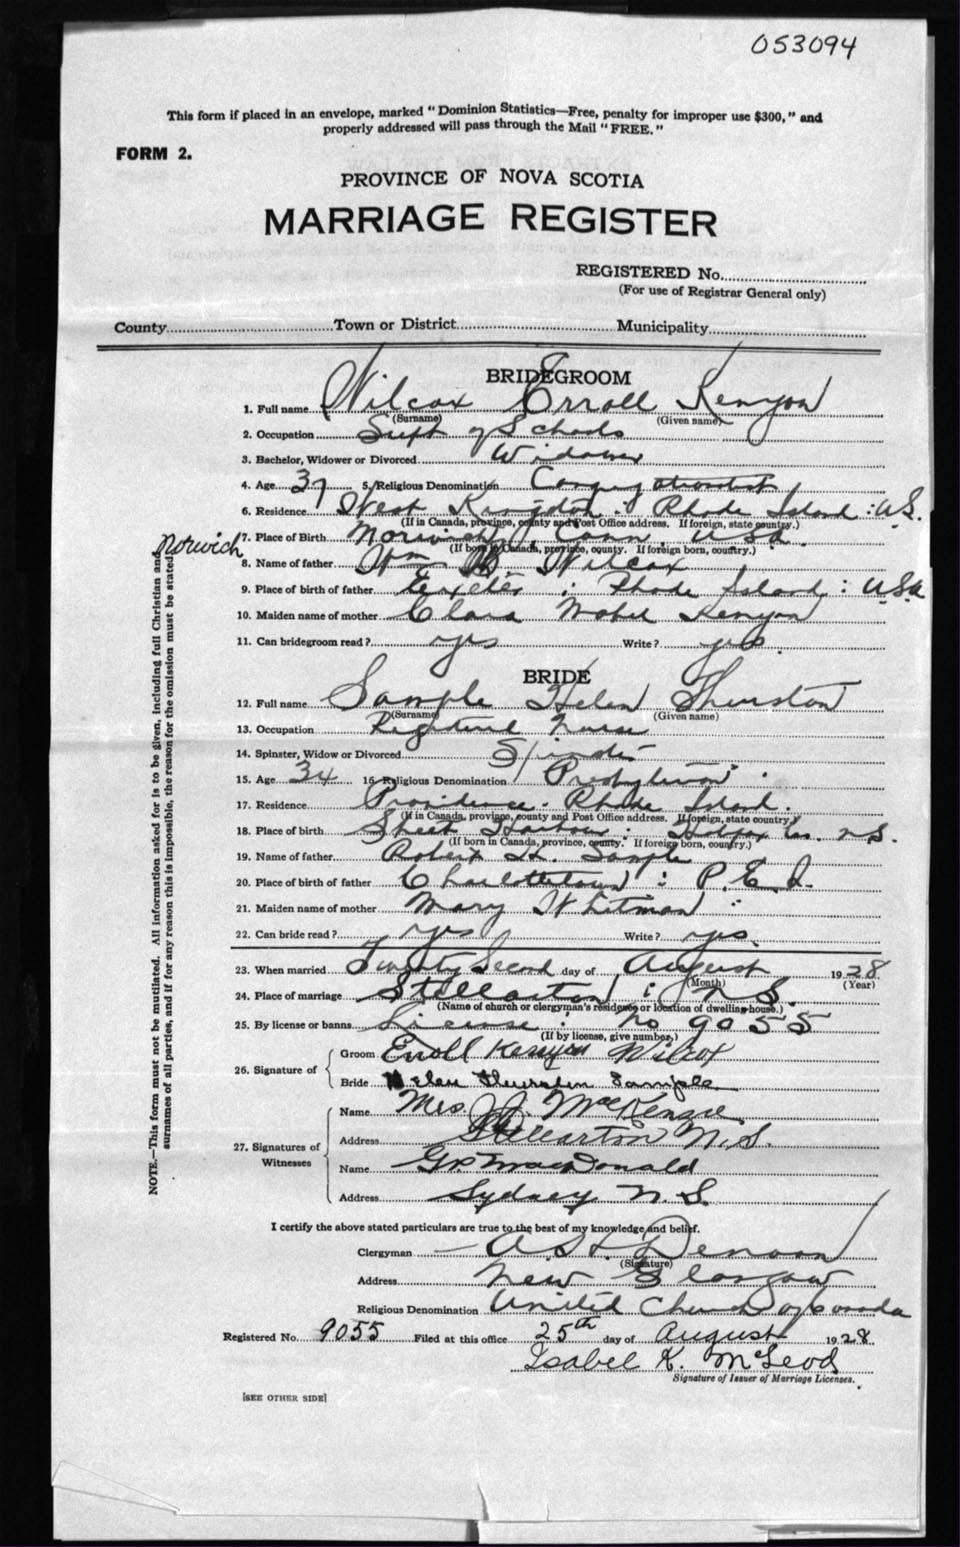 053094
This form if placed in an envelope, marked "Dominion Statistics—Free, penalty for improper use $300," and
properly addressed will pass through the Mail "FREE."
FORM 2.
PROVINCE OF NOVA SCOTIA
MARRIAGE REGISTER
REGISTERED No.
(For use of Registrar General only)
County Town or District Municipality
BRIDEGROOM
1. Full name Wilcox Erroll Kenyon
(Surname) (Given name)
2. Occupation Supt of Schools
3. Bachelor, Widower or Divorced Widower
4. Age 37 5. Religious Denomination Congregationalist
6. Residence West Kingston : Rhode Island : U.S.
(If in Canada, province, county and Post Office address. If foreign, state country.)
Norwich
7. Place of Birth Conn. USA.
(If born in Canada, province, county. If foreign born, country.)
8. Name of father Wm Wilcox
9. Place of birth of father Exeter : Rhode Island : USA
10. Maiden name of mother Clara Mabel Kenyon
11. Can bridegroom read? yes Write? yes.
BRIDE
12. Full name Sample Helen Thurston
(Surname) (Given name)
13. Occupation Registered Nurse
14. Spinster, Widow or Divorced Spinster
15. Age 34 16. Religious Denomination Presbyterian
17. Residence Providence. Rhode Island.
(If in Canada, province, county and Post Office address. If foreign, state country.)
18. Place of birth Sheet Harbour : Halifax Co. N.S.
(If born in Canada, province, county. If foreign born, country.)
19. Name of father Robert H. Sample
20. Place of birth of father Charlottetown : P.E.I.
21. Maiden name of mother Mary Whitman
22. Can bride read? yes Write? yes.
23. When married Twenty Second day of August 1928
(Month) (Year)
24. Place of marriage Stellarton : N.S.
(Name of church or clergyman's residence or location of dwelling-house.)
25. By license or banns License : No 9055
(If by license, give number.)
26. Signature of
Groom Erroll Kenyon Wilcox
Bride Helen Thurston Sample
27. Signatures of Witnesses
Name Mrs. J. MacKenzie
Address Stellarton N.S.
Name G.P. MacDonald
Address Sydney N.S.
I certify the above stated particulars are true to the best of my knowledge and belief.
Clergyman Denoon
(Signature)
Address New Glasgow
Religious Denomination United Church of Canada
Registered No. 9055 Filed at this office 25th day of August 1928
Isabel K. McLeod
Signature of Issuer of Marriage Licenses.
[SEE OTHER SIDE]
NOTE.—This form must not be mutilated. All information asked for is to be given, including full Christian and
surnames of all parties, and if for any reason this is impossible, the reason for the omission must be stated.